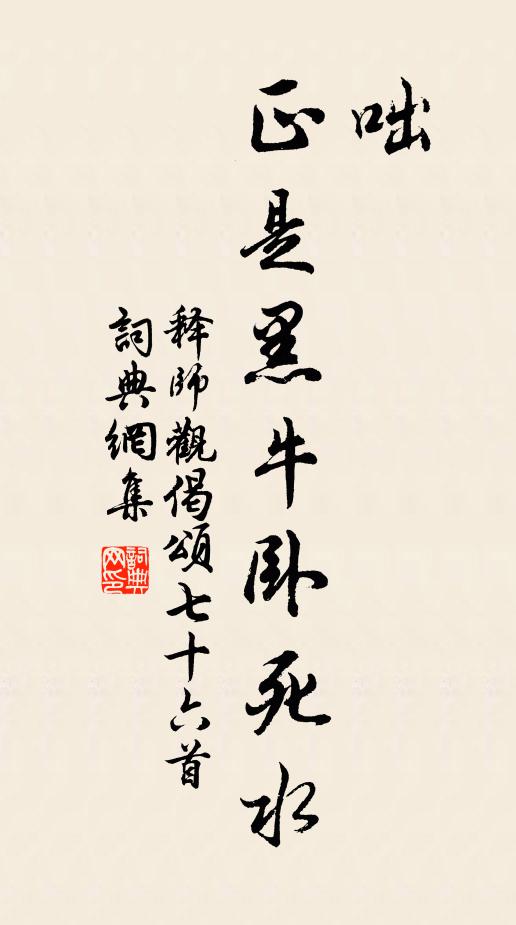 咄
正是黑牛卧死水
释師觀偈頌七十六首
詞典網集
詞典网印